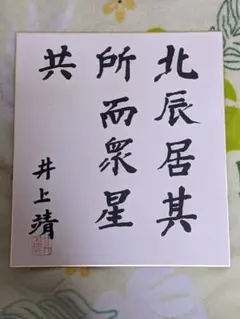 北辰居其
所而衆星
共
井上靖